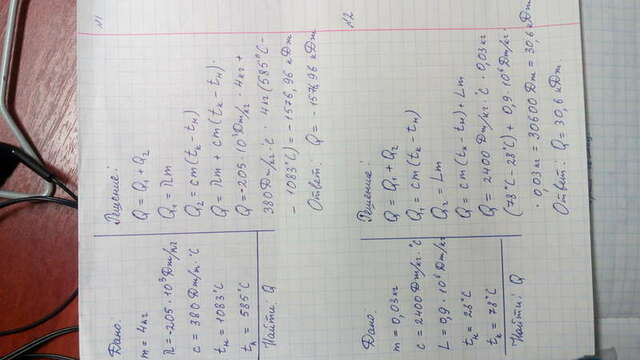 №1
Дано:
m = 4кг
λ = -205·10³Дж/кг
c = 380 Дж/кг·°C
tн = 1083°C
tк = 585°C
Найти: Q
Решение:
Q = Q₁ + Q₂
Q₁ = λm
Q₂ = cm(tк - tн)
Q = λm + cm(tк - tн)·
Q = -205·10³Дж/кг · 4кг +
380Дж/кг·°C · 4кг(585°C -
- 1083°C) = -1576,96 кДж
Ответ: Q = -1576,96 кДж
№2
Дано:
m = 0,03кг
c = 2400 Дж/кг·°C
L = 0,9·10⁶ Дж/кг
tн = 28°C
tк = 78°C
Найти: Q
Решение:
Q = Q₁ + Q₂
Q₁ = cm(tк - tн)
Q₂ = Lm
Q = cm(tк - tн) + Lm
Q = 2400 Дж/кг·°C · 0,03кг
(78°C - 28°C) + 0,9·10⁶Дж/кг·
· 0,03кг = 30600Дж = 30,6кДж
Ответ: Q = 30,6 кДж.